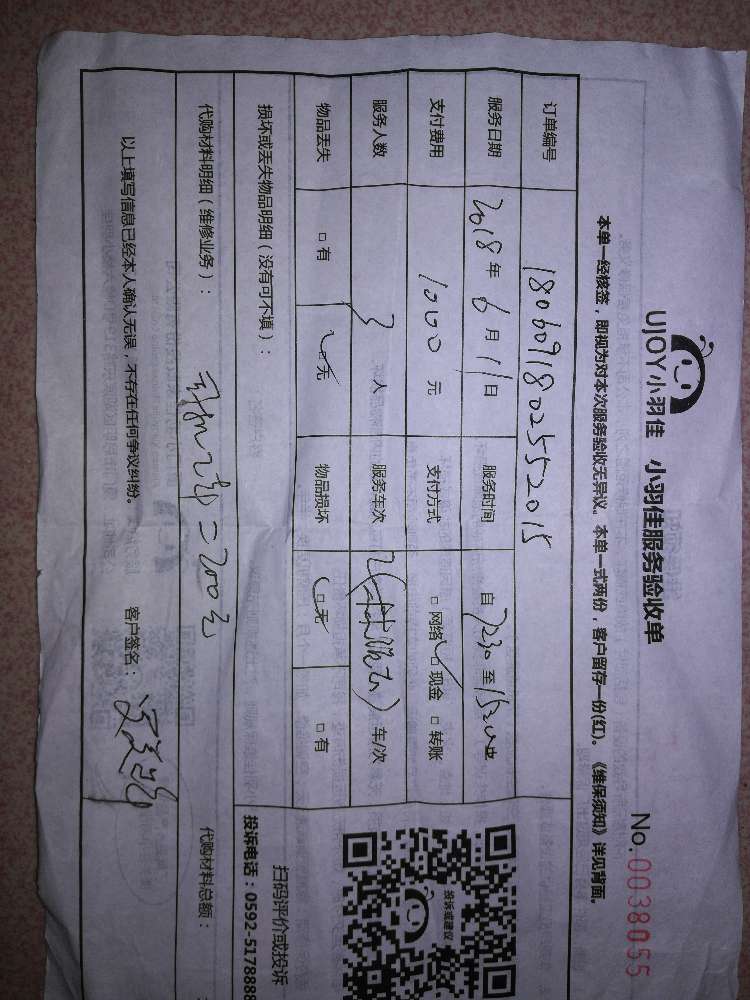 UJOY小羽佳 小羽佳服务验收单
No.0038055
本单一经核签，即视为对本次服务验收无异议。本单一式两份，客户留存一份(红)。《维保须知》详见背面。
订单编号 1806091802552015
服务日期 2018 年 6 月 11 日 服务时间 自 7230 至
支付费用 1000 元 支付方式 □ 网络 □ 现金 □ 转账
服务人数 3 人 服务车次 车/次
物品丢失 □ 有 □ 无 物品损坏 □ 无 □ 有
损坏或丢失物品明细（没有可不填）：
代购材料明细（维修业务）： 二200元 代购材料总额：
以上填写信息已经本人确认无误，不存在任何争议纠纷。 客户签名：
投诉或建议
扫码评价或投诉
投诉电话：0592-5178888